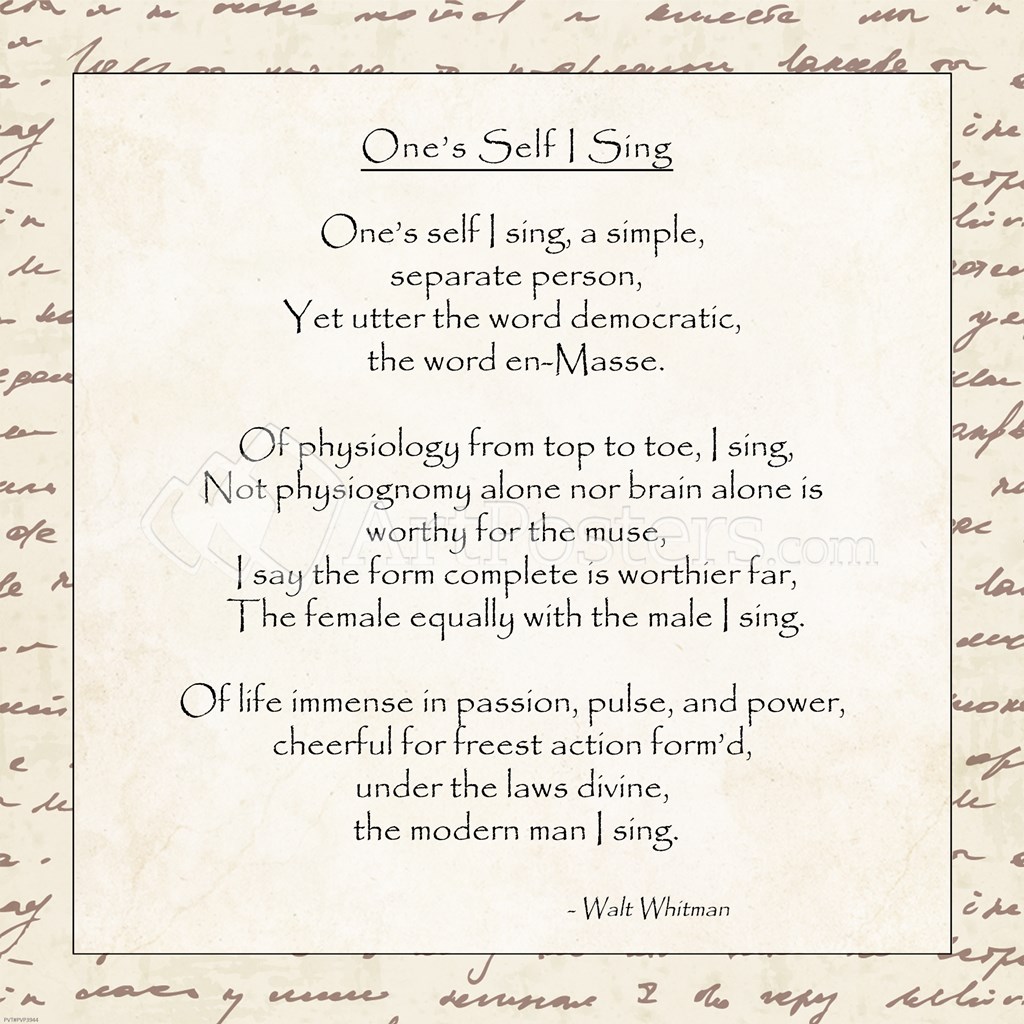 One's Self I Sing
One's self I sing, a simple,
separate person,
Yet utter the word democratic,
the word en-Masse.
Of physiology from top to toe, I sing,
Not physiognomy alone nor brain alone is
worthy for the muse,
I say the form complete is worthier far,
The female equally with the male I sing.
Of life immense in passion, pulse, and power,
cheerful for freest action form'd,
under the laws divine,
the modern man I sing.
- Walt Whitman
ArtPosters.com